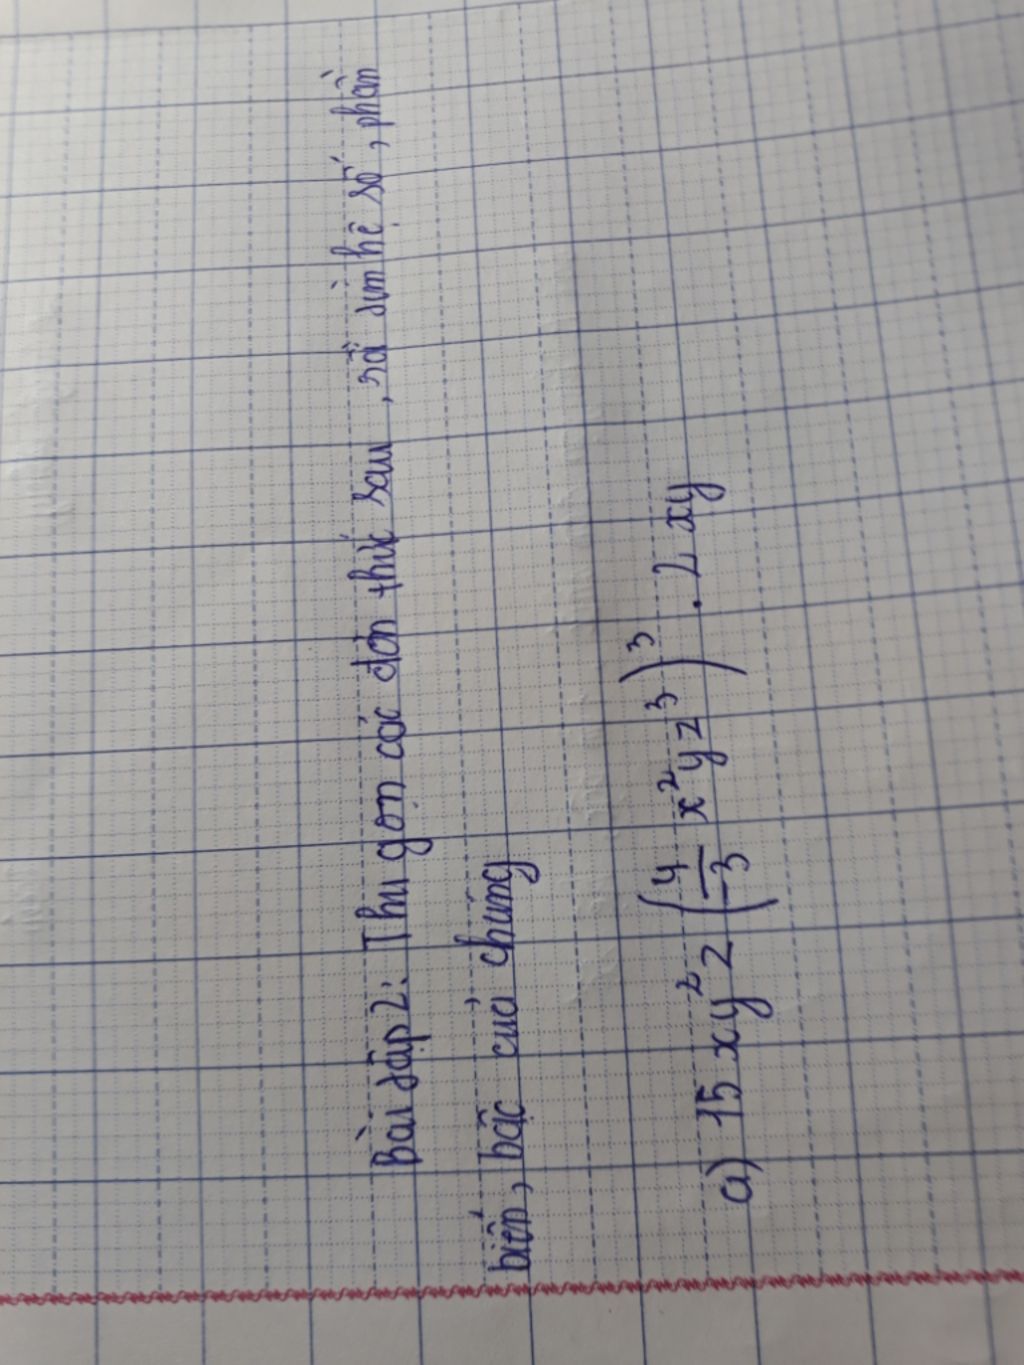 Bài tập 2: Thu gọn các đơn thức sau, rồi tìm hệ số, phần
biến, bậc của chúng
a) 15 xy² z (4/3 x²yz³)³ . 2 xy